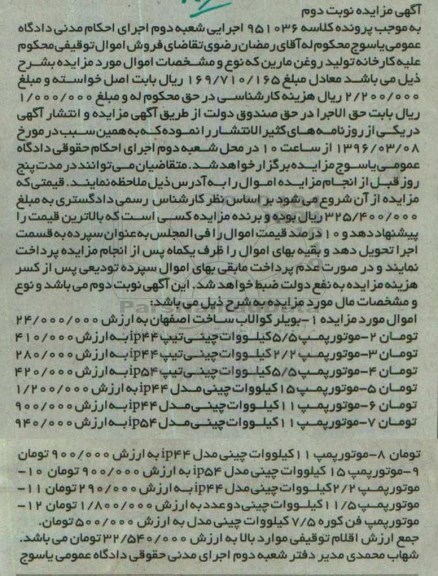 آگهی مزایده نوبت دوم
به موجب پرونده کلاسه ۹۵۱۰۳۶ اجرایی شعبه دوم اجرای احکام مدنی دادگاه
عمومی یاسوج محکوم له آقای رمضان رضوی تقاضای فروش اموال توقیفی محکوم
علیه کارخانه تولید روغن مارین که نوع و مشخصات اموال مورد مزایده بشرح
ذیل می باشد معادل مبلغ ۱۶۹/۷۱۰/۱۶۵ ریال بابت اصل خواسته و مبلغ
۲/۲۰۰/۰۰۰ ریال هزینه کارشناسی در حق محکوم له و مبلغ ۱/۰۰۰/۰۰۰
ریال بابت حق الاجرا در حق صندوق دولت از طریق آگهی مزایده و انتشار آگهی
در یکی از روزنامه های کثیر الانتشار را نموده که به همین سبب در مورخ
۱۳۹۶/۰۳/۰۸ از ساعت ۱۰ در محل شعبه دوم اجرای احکام حقوقی دادگاه
عمومی یاسوج مزایده برگزار خواهد شد. متقاضیان می توانند در مدت پنج
روز قبل از انجام مزایده اموال را به آدرس ذیل ملاحظه نمایند. قیمتی که
مزایده از آن شروع می شود بر اساس نظر کارشناس رسمی دادگستری به مبلغ
۳۲۵/۴۰۰/۰۰۰ ریال بوده و برنده مزایده کسی است که بالاترین قیمت را
پیشنهاد دهد و ۱۰ درصد قیمت اموال را فی المجلس به عنوان سپرده به قسمت
اجرا تحویل دهد و بقیه بهای اموال را ظرف یکماه پس از انجام مزایده پرداخت
نمایند و در صورت عدم پرداخت مابقی بهای اموال سپرده تودیعی پس از کسر
هزینه مزایده به نفع دولت ضبط خواهد شد. این آگهی نوبت دوم می باشد و نوع
و مشخصات مال مورد مزایده به شرح ذیل می باشد:
اموال مورد مزایده ۱-بویلر کوالاب ساخت اصفهان به ارزش ۲۴/۰۰۰/۰۰۰
تومان ۲-موتورپمپ ۵/۵ کیلووات چینی تیپ ip۴۴ به ارزش ۴۱۰/۰۰۰
تومان ۳-موتورپمپ ۲/۲ کیلووات چینی تیپ ip۴۴ به ارزش ۲۸۰/۰۰۰
تومان ۴-موتورپمپ ۵/۵ کیلووات چینی تیپ ip۵۴ به ارزش ۴۲۰/۰۰۰
تومان ۵-موتورپمپ ۱۵ کیلووات چینی مدل ip۴۴ به ارزش ۱/۲۰۰/۰۰۰
تومان ۶-موتورپمپ ۱۱ کیلووات چینی مدل ip۴۴ به ارزش ۹۰۰/۰۰۰
تومان ۷-موتورپمپ ۱۱ کیلووات چینی مدل ip۵۴ به ارزش ۹۴۰/۰۰۰
تومان ۸-موتورپمپ ۱۱ کیلووات چینی مدل ip۴۴ به ارزش ۹۰۰/۰۰۰ تومان
۹-موتورپمپ ۱۵ کیلووات چینی مدل ip۵۴ به ارزش ۹۰۰/۰۰۰ تومان ۱۰-
موتورپمپ ۲/۲ کیلووات چینی مدل ip۴۴ به ارزش ۲۹۰/۰۰۰ تومان ۱۱-
موتورپمپ ۱۱/۵ کیلووات چینی دو عدد به ارزش ۱/۸۰۰/۰۰۰ تومان ۱۲-
موتورپمپ فن کوره ۷/۵ کیلووات چینی مدل به ارزش ۵۰۰/۰۰۰ تومان.
جمع ارزش اقلام توقیفی موارد بالا به ارزش ۳۲/۵۴۰/۰۰۰ تومان می باشد.
شهاب محمدی مدیر دفتر شعبه دوم اجرای مدنی حقوقی دادگاه عمومی یاسوج